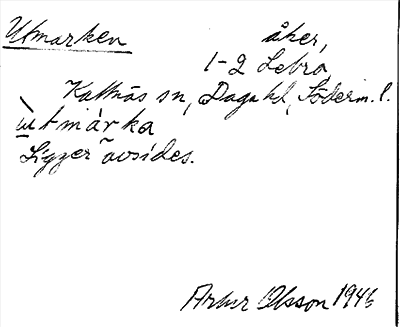 Utmarken åker,
1-2 Lebro
Kattnäs sn, Daga hd, Söderm. l.
ùtmárka
Ligger avsides.
Artur Olsson 1946